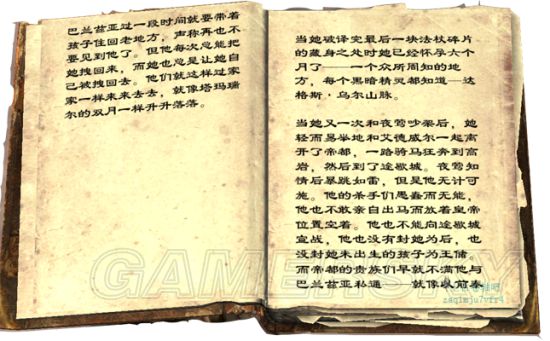 巴兰兹亚过一段时间就要带着
孩子住回老地方，声称再也不
要见到他了。但他每次总能把
她找回来，而她也总是让她自
己被拽回去。他们就这样过家
家一样来来去去，就像塔玛瑞
尔的双月一样升升落落。
当她破译完最后一块法杖碎片
的藏身之处时她已经怀孕六个
月了——一个众所周知的地
方，每个黑暗精灵都知道—达
格斯·乌尔山脉。
当她又一次和夜莺吵架后，她
轻而易举地和艾德威尔一起离
开了帝都，一路骑马狂奔到高
岩，然后到了途歇城。夜莺知
情后暴跳如雷，但是他无计可
施。他的杀手们愚蠢而无能，
他也不敢亲自出马而放着皇帝
位置空着。他也不能向途歇城
宣战，他也没有封她为后，也
没封她未出生的孩子为王储。
而帝都的贵族们早就不满他与
巴兰兹亚私通——就像以前泰
GAMERSKY
zaqimju7vfr4